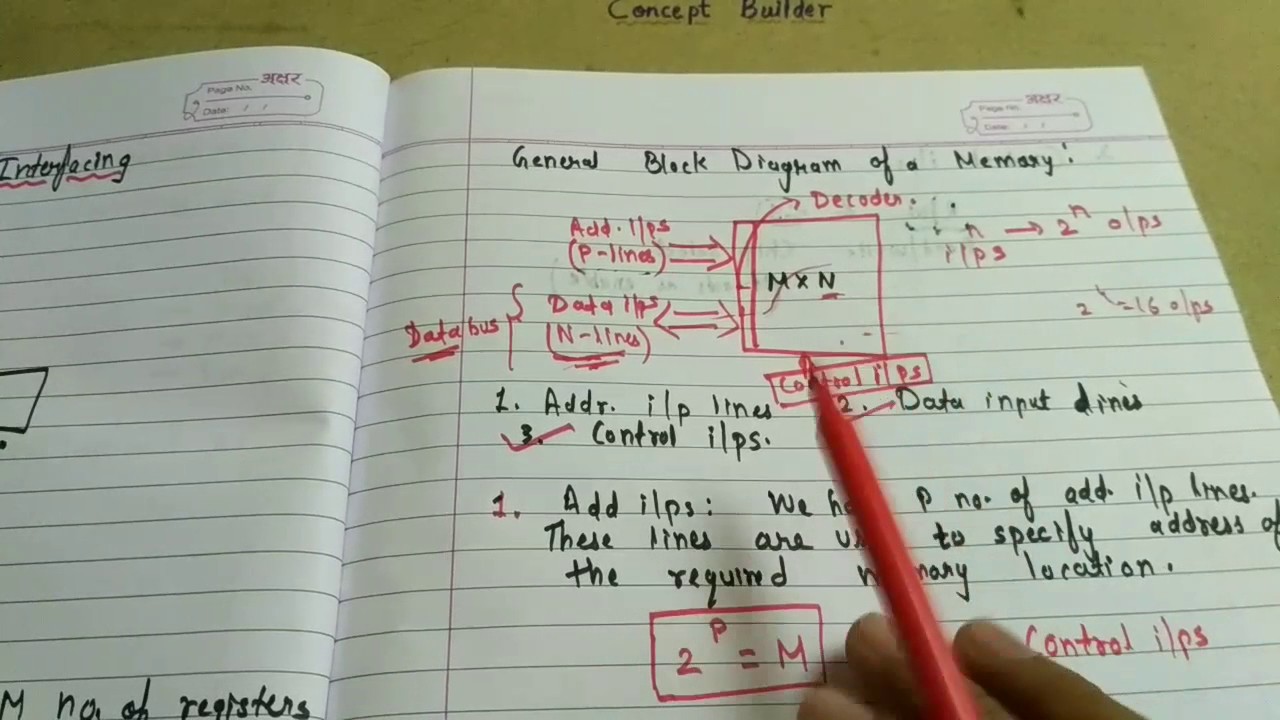 Concept Builder
अक्षर
Page No.
Date: / /
Interfacing
M no. of registers
अक्षर
Page no.
Date: / /
General Block Diagram of a Memory:
Decoder.
Add. i/ps
(P-lines)
n → 2^n o/ps
i/ps
M x N
Data i/ps
(N-lines)
Data bus
= 16 o/ps
Control i/ps
1. Addr. i/p lines 2. Data input lines
3. Control i/ps.
1. Add i/ps: We P no. of add. i/p lines.
These lines are to specify address of
the required location.
2^P = M
Control i/ps